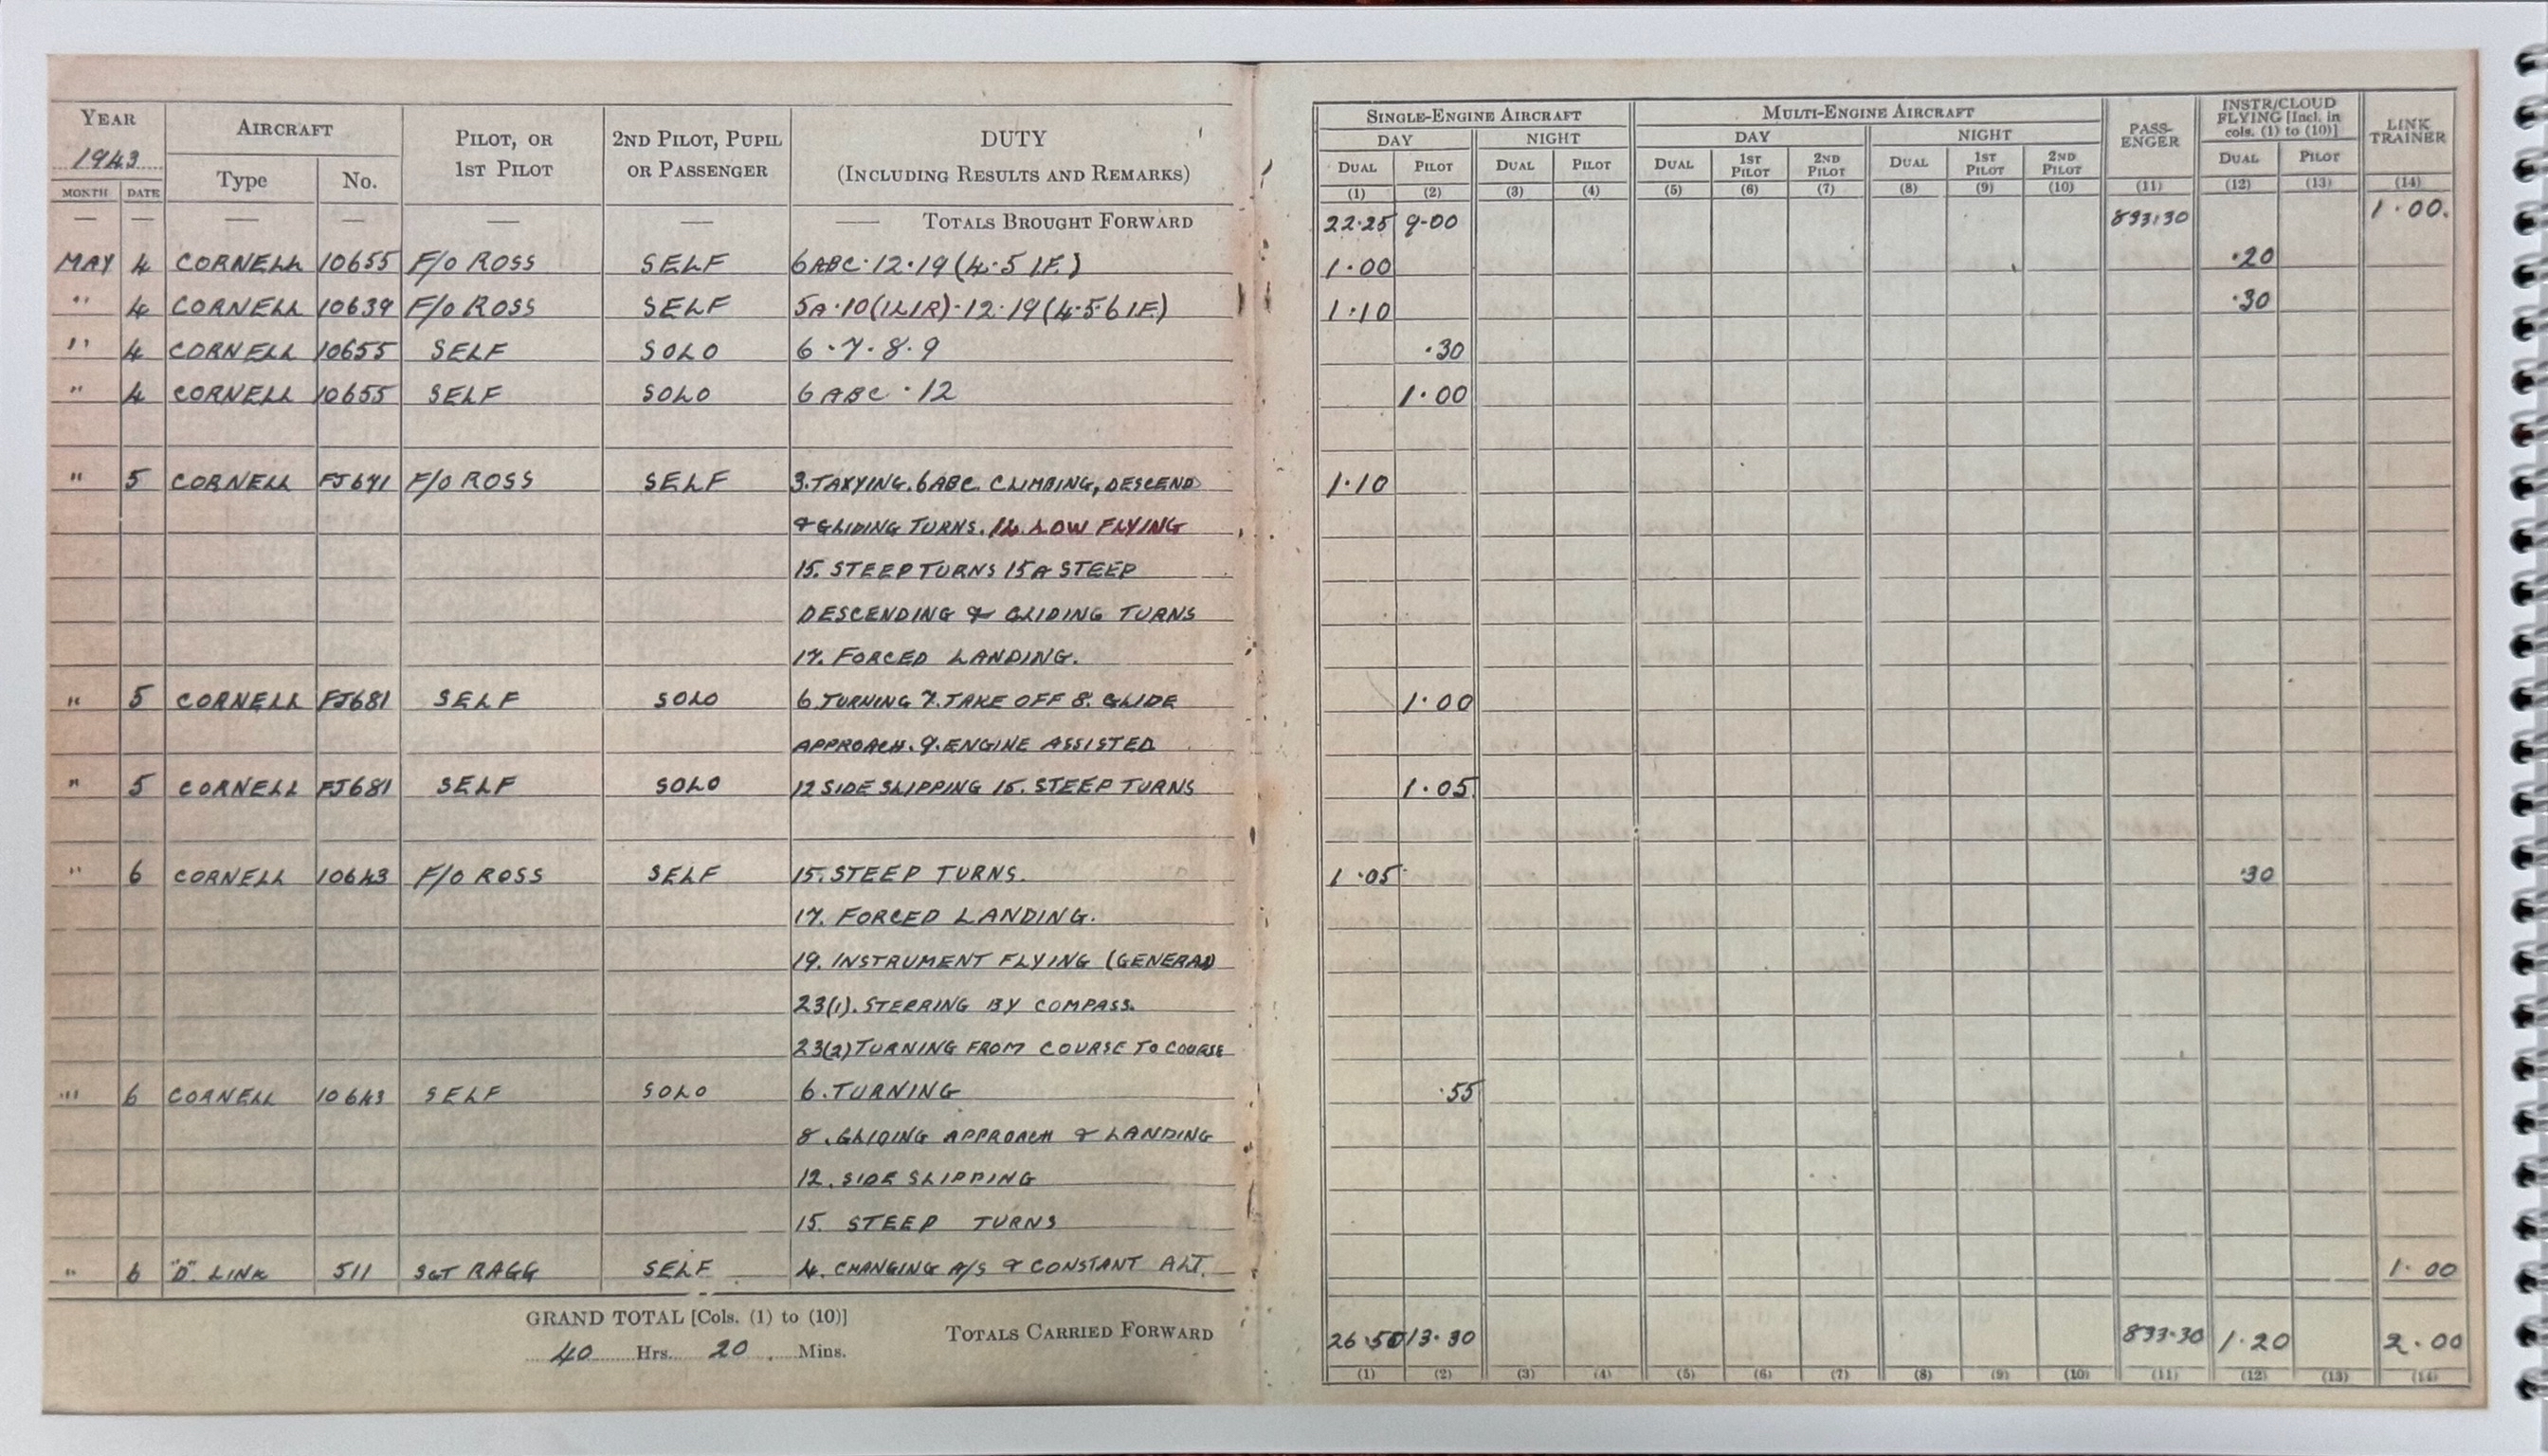 YEAR 1943 AIRCRAFT PILOT, OR 1ST PILOT 2ND PILOT, PUPIL OR PASSENGER DUTY (INCLUDING RESULTS AND REMARKS) SINGLE-ENGINE AIRCRAFT MULTI-ENGINE AIRCRAFT PASS-ENGER INSTR/CLOUD FLYING [Incl. in cols. (1) to (10)] LINK TRAINER
DAY NIGHT DAY NIGHT
MONTH DATE Type No. DUAL PILOT DUAL PILOT DUAL 1ST PILOT 2ND PILOT DUAL 1ST PILOT 2ND PILOT DUAL PILOT
(1) (2) (3) (4) (5) (6) (7) (8) (9) (10) (11) (12) (13) (14)
— — — — — — —— TOTALS BROUGHT FORWARD 22·25 9·00 833·30 1·00.
MAY 4 CORNELL 10655 F/O ROSS SELF 6ABC·12·19(4·5 I.F.) 1·00 ·20
" 4 CORNELL 10639 F/O ROSS SELF 5A·10(1L1R)·12·19(4·5·6 I.F.) 1·10 ·30
" 4 CORNELL 10655 SELF SOLO 6·7·8·9 ·30
" 4 CORNELL 10655 SELF SOLO 6ABC·12 1·00
" 5 CORNELL FJ671 F/O ROSS SELF 3.TAXYING.6ABC. CLIMBING, DESCEND 1·10
& GLIDING TURNS. 14. LOW FLYING
15. STEEP TURNS 15A STEEP
DESCENDING & GLIDING TURNS
17. FORCED LANDING.
" 5 CORNELL FJ681 SELF SOLO 6.TURNING 7.TAKE OFF 8. GLIDE 1·00
APPROACH. 9.ENGINE ASSISTED
" 5 CORNELL FJ681 SELF SOLO 12 SIDE SLIPPING 15. STEEP TURNS 1·05
" 6 CORNELL 10643 F/O ROSS SELF 15. STEEP TURNS. 1·05 ·30
17. FORCED LANDING.
19. INSTRUMENT FLYING (GENERAL)
23(1). STEERING BY COMPASS.
23(2) TURNING FROM COURSE TO COURSE
" 6 CORNELL 10643 SELF SOLO 6. TURNING ·55
8. GLIDING APPROACH & LANDING
12. SIDE SLIPPING
15. STEEP TURNS
" 6 "D" LINK 511 SGT RAGG SELF 4. CHANGING A/S & CONSTANT ALT. 1·00
GRAND TOTAL [Cols. (1) to (10)]
40 Hrs. 20 Mins. TOTALS CARRIED FORWARD 26·50 13·30 833·30 1·20 2·00
(1) (2) (3) (4) (5) (6) (7) (8) (9) (10) (11) (12) (13) (14)